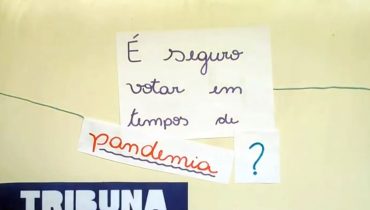 É seguro
votar em
tempos de
pandemia ?
TRIBUNA